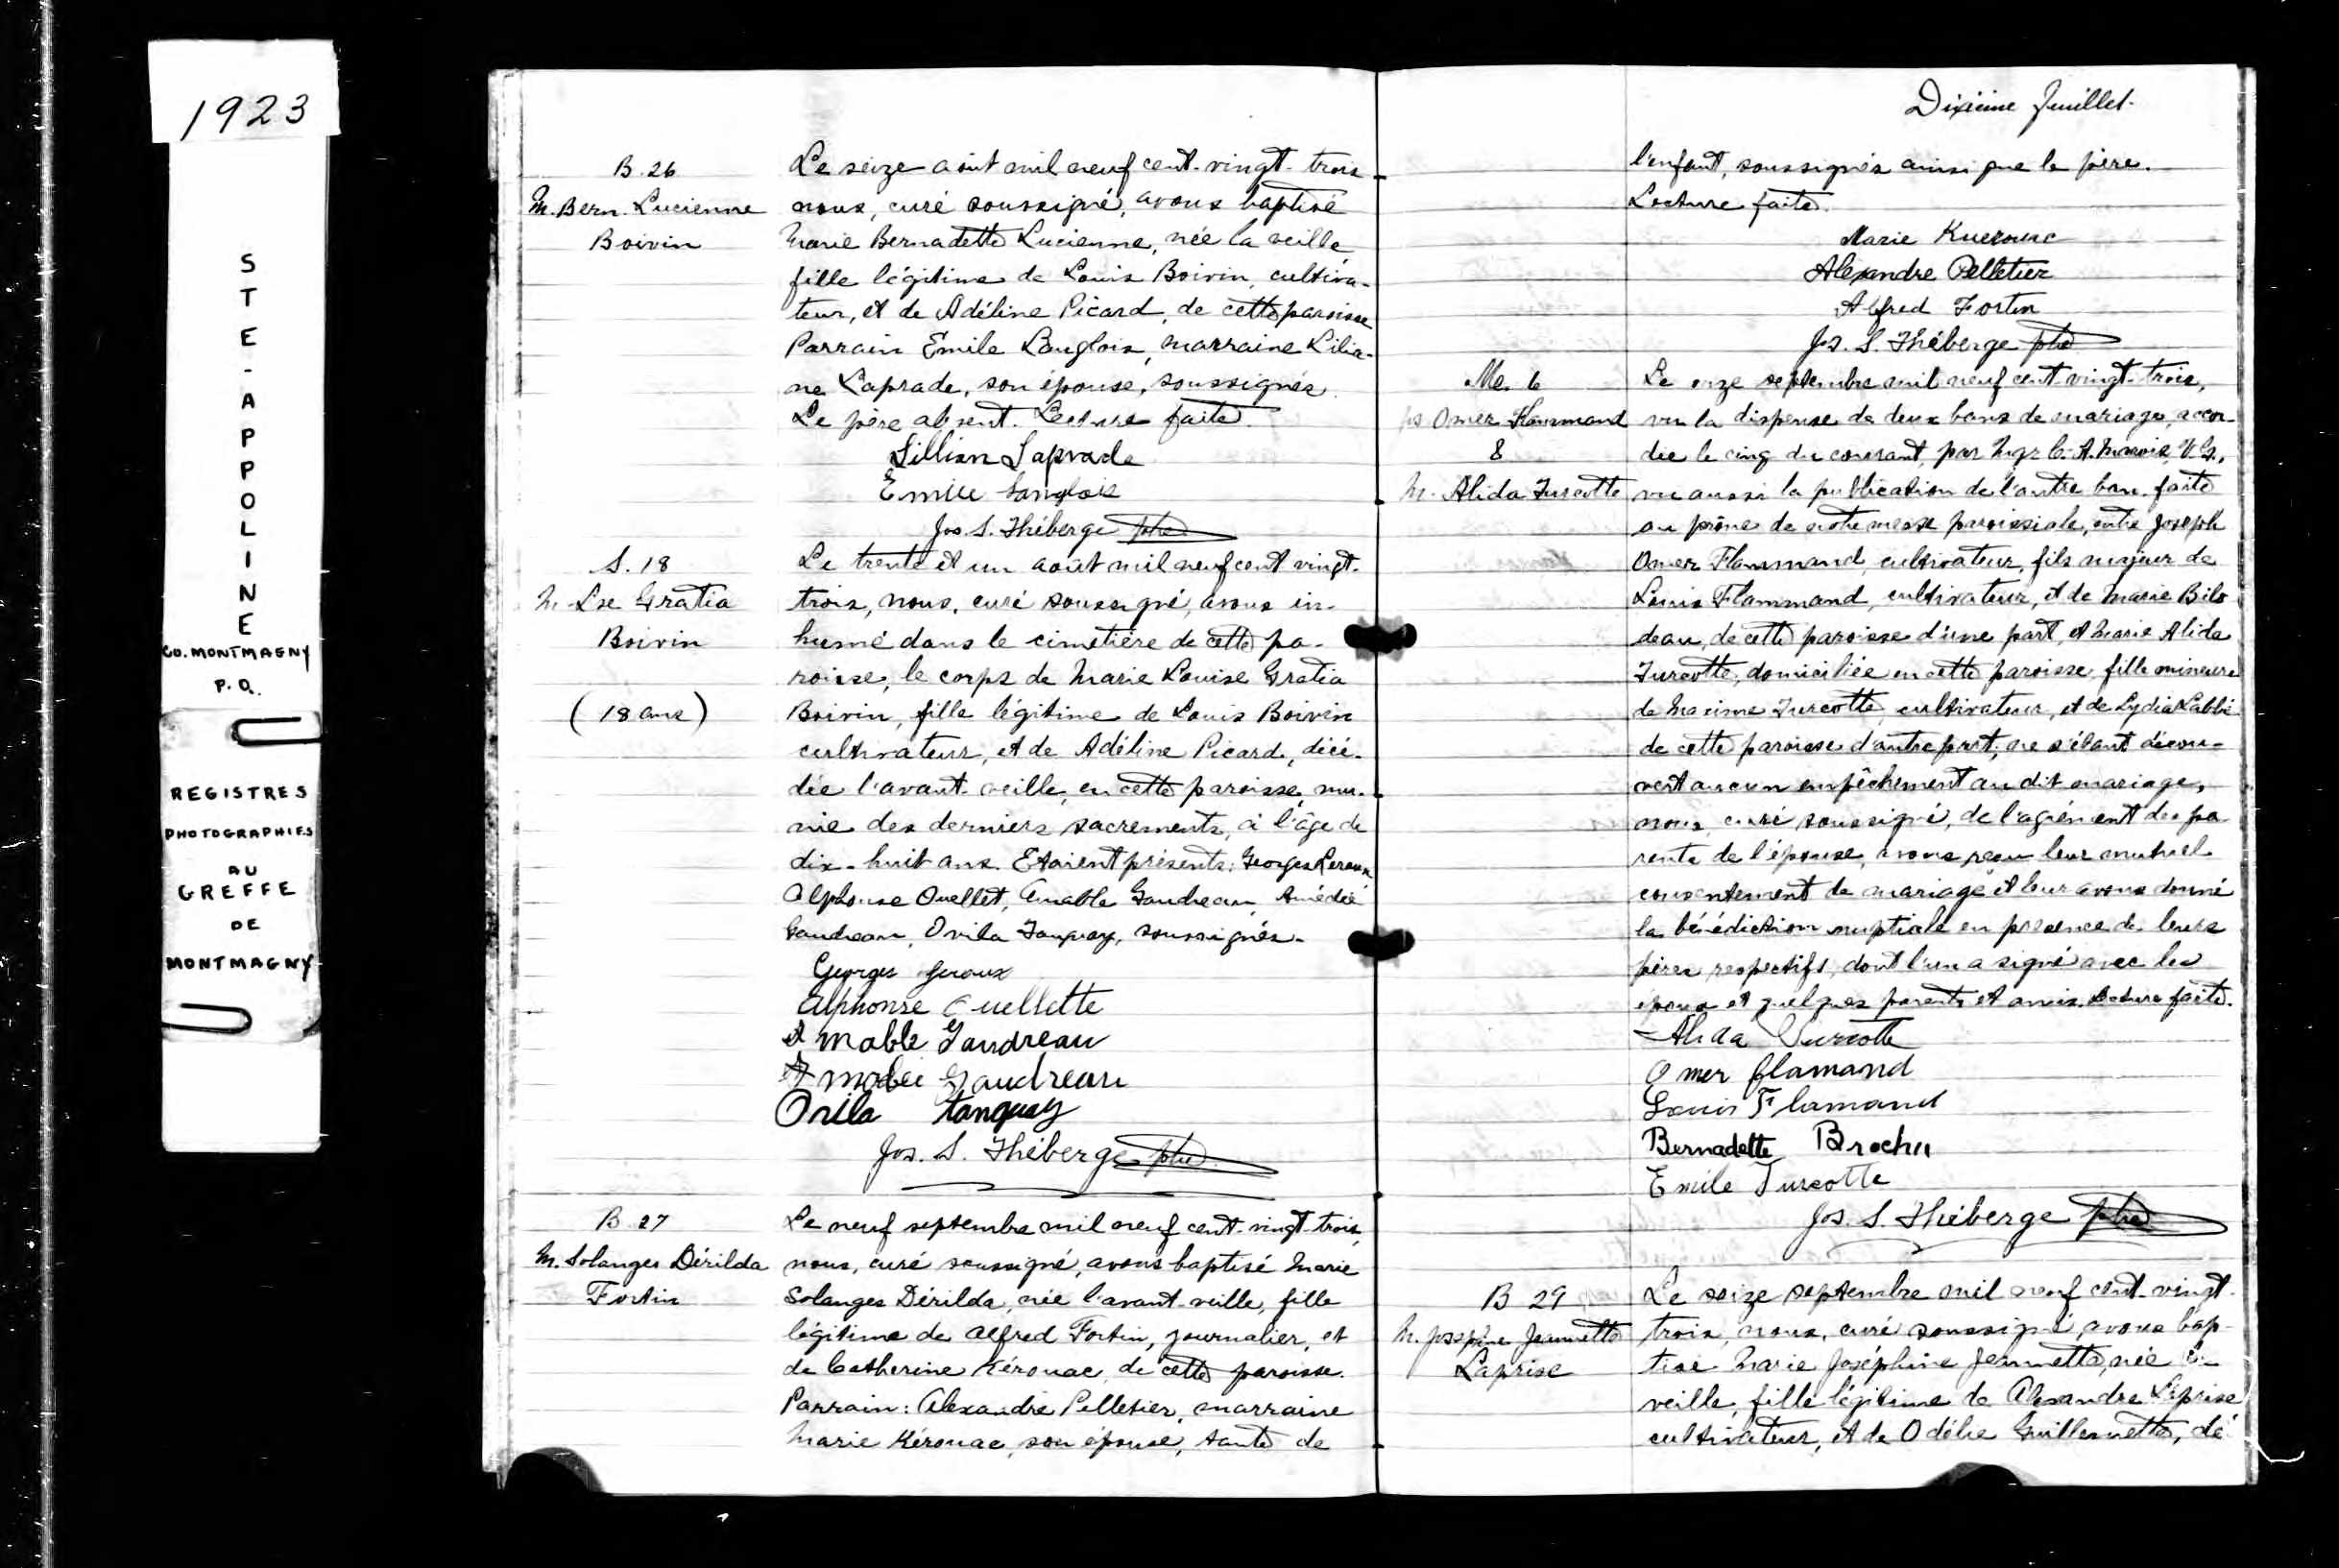 1923
S
T
E
-
A
P
P
O
L
I
N
E
CO. MONTMAGNY
P.Q.
REGISTRES
PHOTOGRAPHIES
AU
GREFFE
DE
MONTMAGNY
B. 26
M. Bern. Lucienne
Boivin
Le seize août mil neuf cent-vingt-trois
nous, curé soussigné, avons baptisé
Marie Bernadette Lucienne, née la veille,
fille légitime de Louis Boivin, cultiva-
teur, et de Adéline Picard, de cette paroisse
Parrain Émile Langlois, marraine Lilia-
ne Laprade, son épouse, soussignés.
Le père absent. Lecture faite.
Lillian Laprade
Emile Langlois
Jos. S. Théberge ptre
S. 18
M. Lse Gratia
Boivin
(18 ans)
Le trente et un août mil neuf cent vingt-
trois, nous, curé soussigné, avons in-
humé dans le cimetière de cette pa-
roisse, le corps de Marie Louise Gratia
Boivin, fille légitime de Louis Boivin
cultivateur, et de Adéline Picard, décé-
dée l'avant-veille, en cette paroisse, mu-
nie des derniers sacrements, à l'âge de
dix-huit ans. Etaient présents: Georges Leroux
Alphonse Ouellet, Amable Gaudreau, Amédée
Gaudreau, Ovila Tanguay, soussignés.
Georges Giroux
Alphonse Ouellette
Amable Gaudreau
Gaudreau
Ovila Tanguay
Jos. S. Théberge ptre
B. 27
M. Solanges Dérilda
Fortin
Le neuf septembre mil neuf cent-vingt-trois,
nous, curé soussigné, avons baptisé Marie
Solanges Dérilda, née l'avant-veille, fille
légitime de Alfred Fortin, journalier, et
de Catherine Kérouac, de cette paroisse.
Parrain: Alexandre Pelletier, marraine
Marie Kérouac, son épouse, tante de
Dixième feuillet.
l'enfant, soussignés ainsi que le père.
Lecture faite.
Marie Kuerouac
Alexandre Pelletier
Alfred Fortin
Jos. S. Théberge ptre
M. 6
Js Omer Flammand
&
M. Alida Turcotte
Le onze septembre mil neuf cent-vingt-trois,
vu la dispense de deux bans de mariage, accor-
dée le cinq du courant, par Mgr C. A. Marois, V. G.,
vu aussi la publication de l'autre ban faite
au prône de notre messe paroissiale, entre Joseph
Omer Flammand, cultivateur, fils majeur de
Louis Flammand, cultivateur, et de Marie Bilo
deau, de cette paroisse d'une part, et Marie Alida
Turcotte, domiciliée en cette paroisse, fille mineure
de Maxime Turcotte, cultivateur, et de Lydia Labbé
de cette paroisse d'autre part; ne s'étant décou-
vert aucun empêchement au dit mariage,
nous, curé soussigné, de l'agrément des pa
rents de l'épouse, avons reçu leur mutuel
consentement de mariage et leur avons donné
la bénédiction nuptiale en présence de leurs
pères respectifs, dont l'un a signé avec les
époux et quelques parents et amis. Lecture faite.
Alida Turcotte
Omer flamand
Louis Flamand
Bernadette Brochu
Emile Turcotte
Jos. S. Théberge ptre
B 29
M. Joséphine Jeannette
Laprise
Le seize septembre mil neuf cent-vingt-
trois, nous, curé soussigné, avons bap-
tisé Marie Joséphine Jeannette, née la
veille, fille légitime de Alexandre Laprise
cultivateur, et de Odélie Guillemette, de